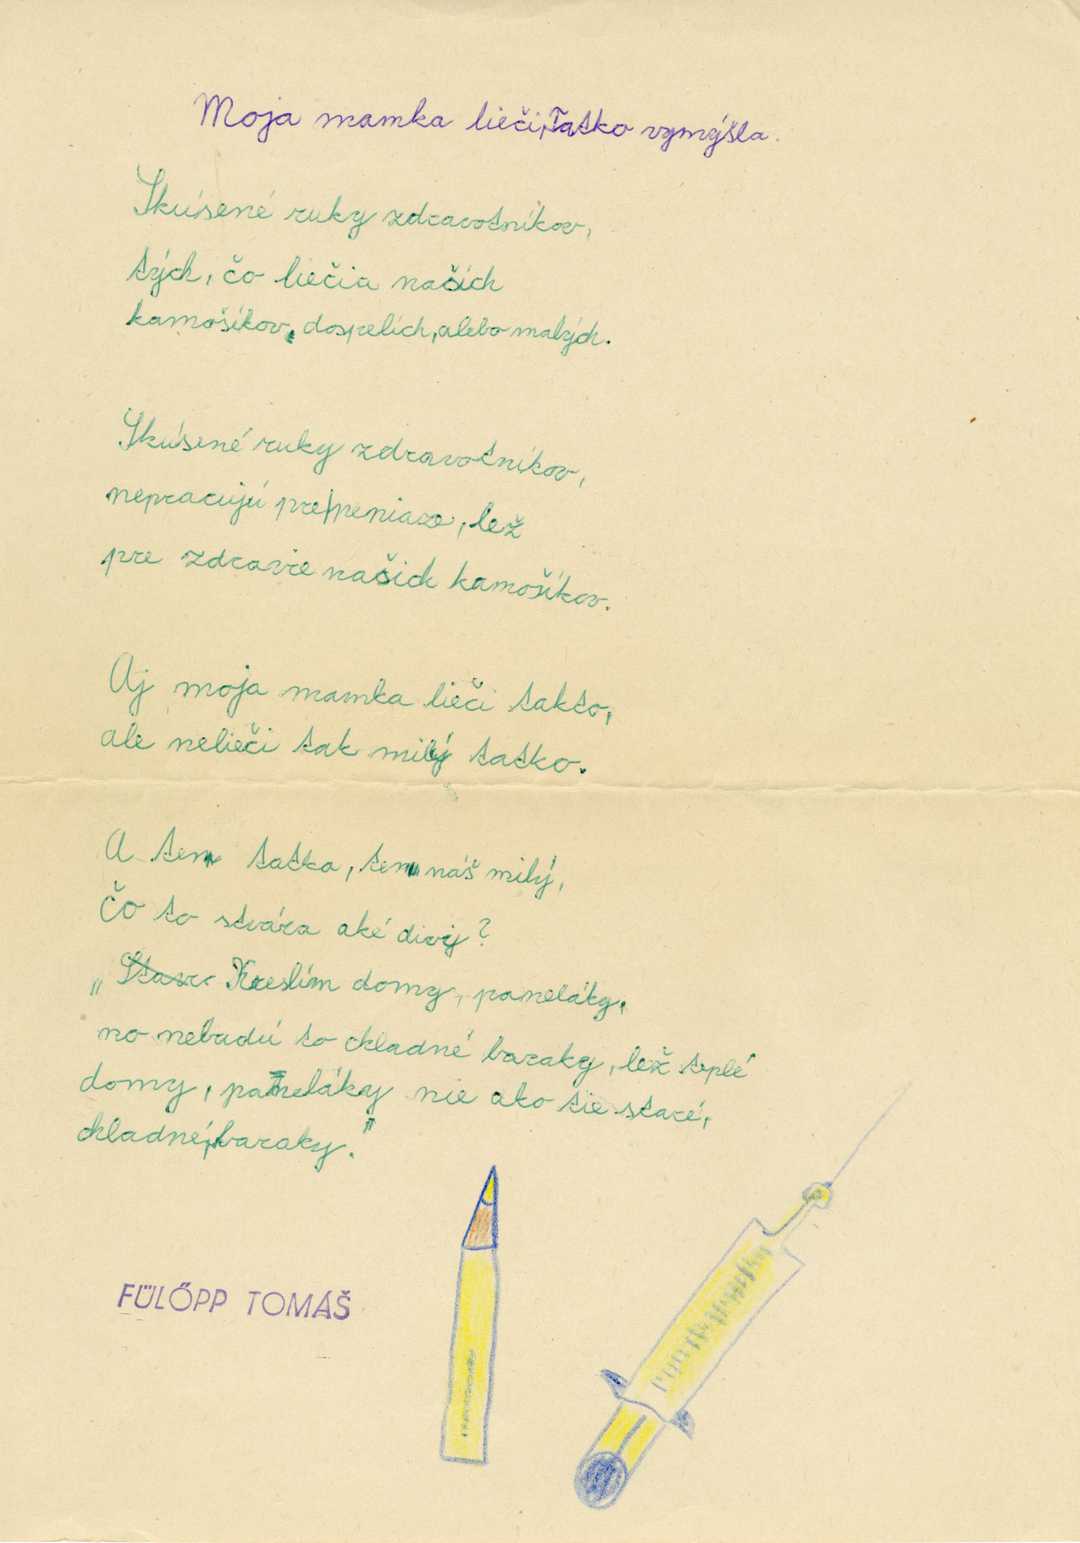 Moja mamka lieči, Tatko vymýšla.
Skúsené ruky zdravotníkov,
tých, čo liečia našich
kamošíkov, dospelích, alebo malých.
Skúsené ruky zdravotníkov,
nepracujú pre peniaze, lež
pre zdravie našich kamošíkov.
Aj moja mamka lieči takto,
ale nelieči tak milý tatko.
A ten tatko, ten náš milý,
čo to stvára aké divy?
„Kreslím domy, paneláky,
no nebudú to chladné baraky, lež teplé
domy, paneláky nie ako tie staré,
chladné, baraky."
FÜLŐPP TOMÁŠ